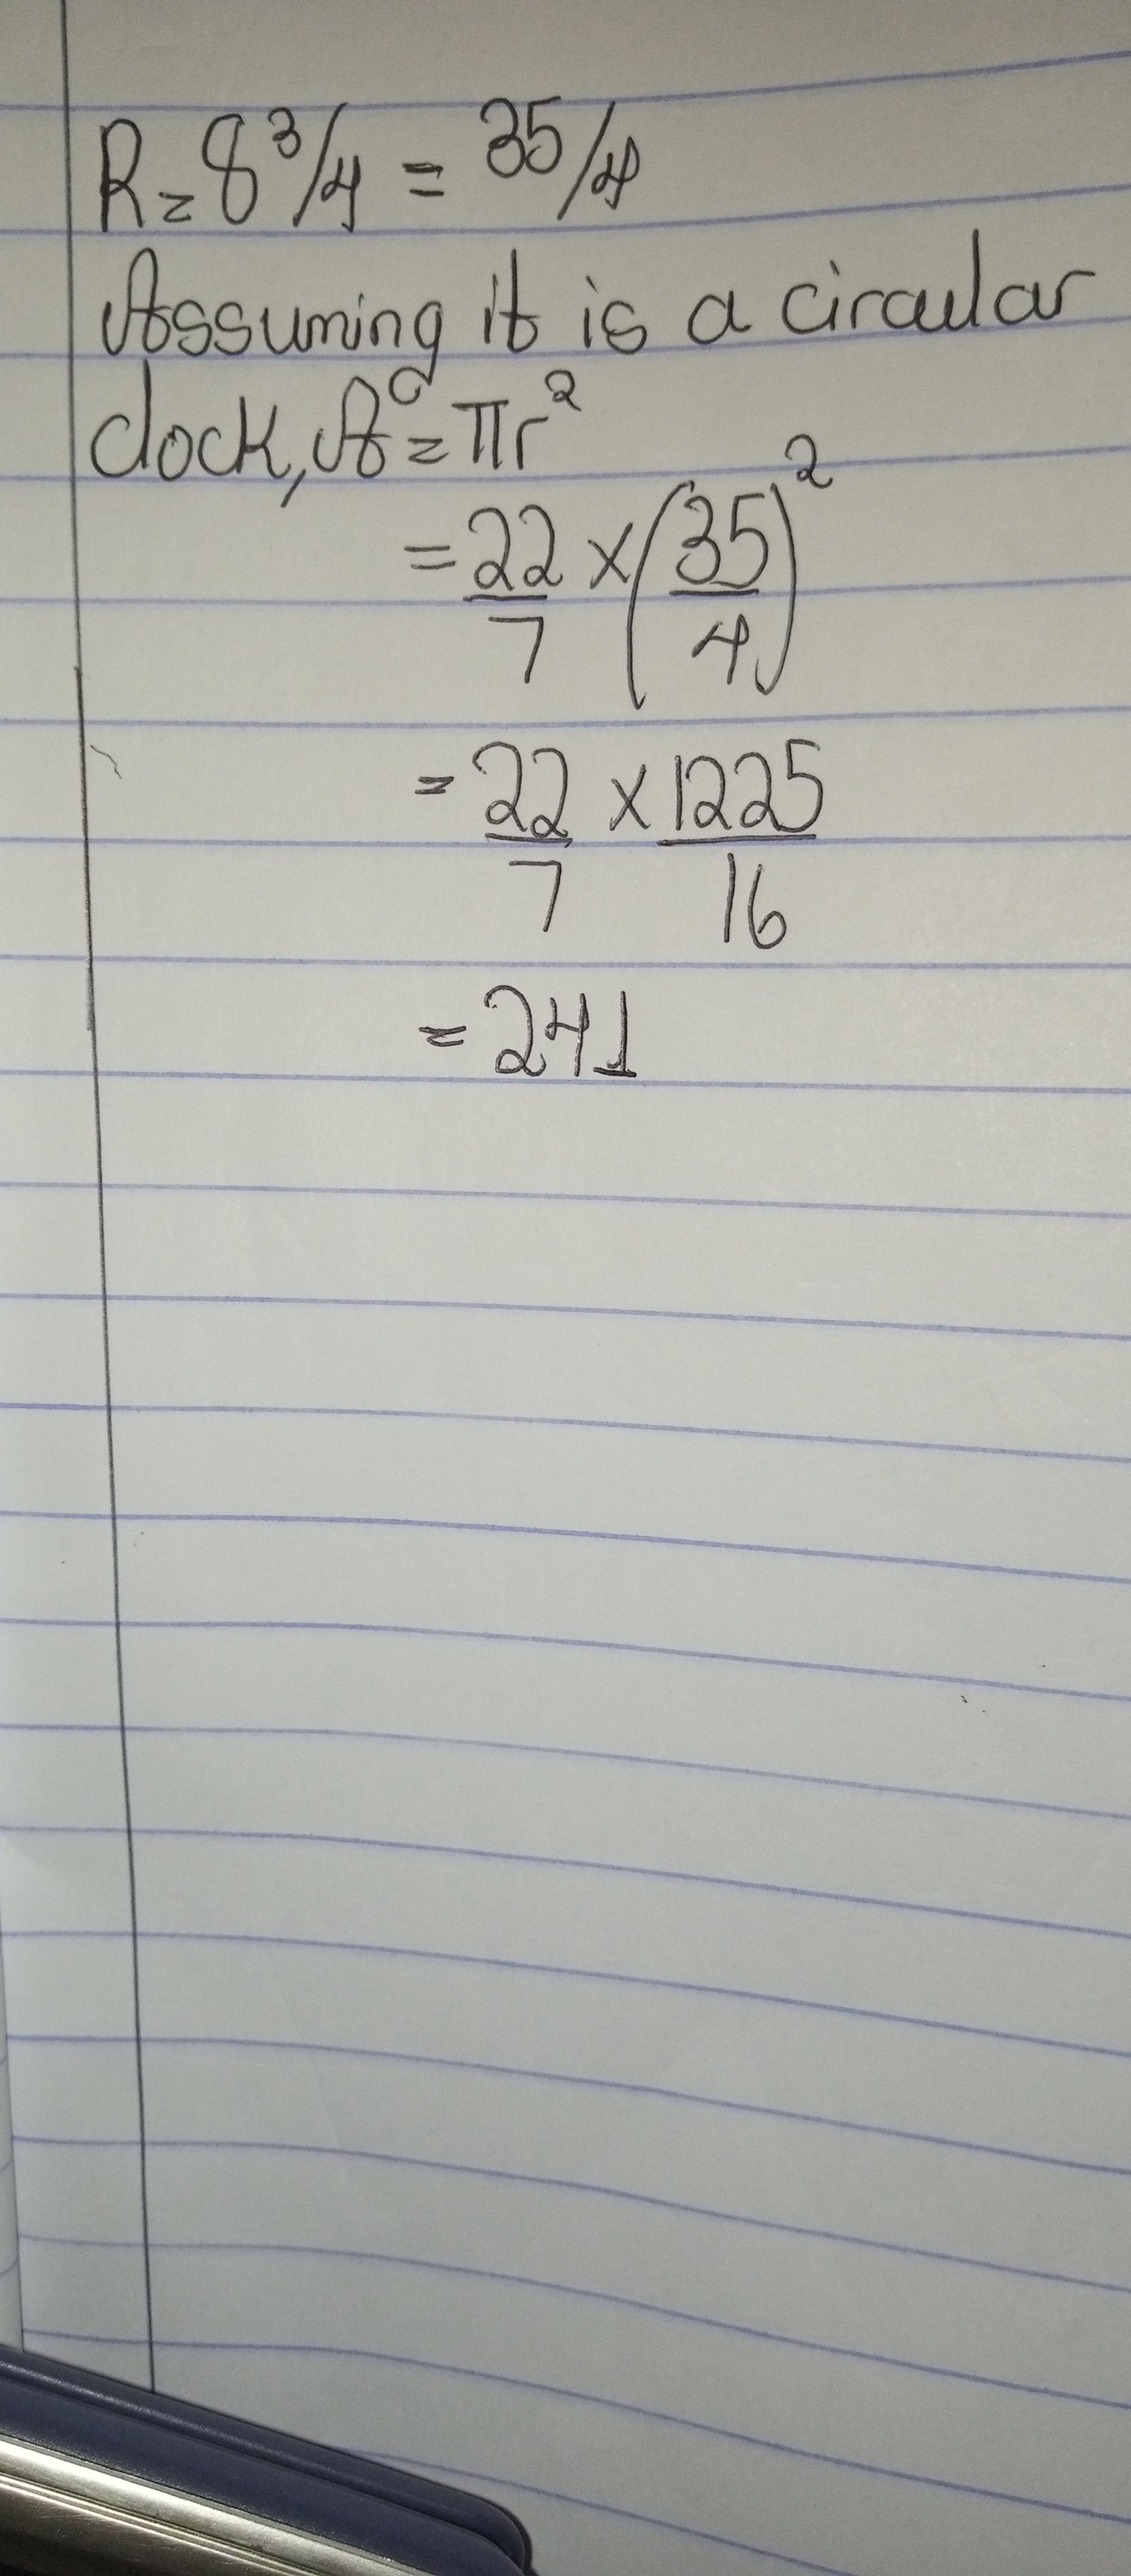 R = 8 3/4 = 35/4
Assuming it is a circular
clock, A = πr²
= 22/7 × (35/4)²
= 22/7 × 1225/16
= 241